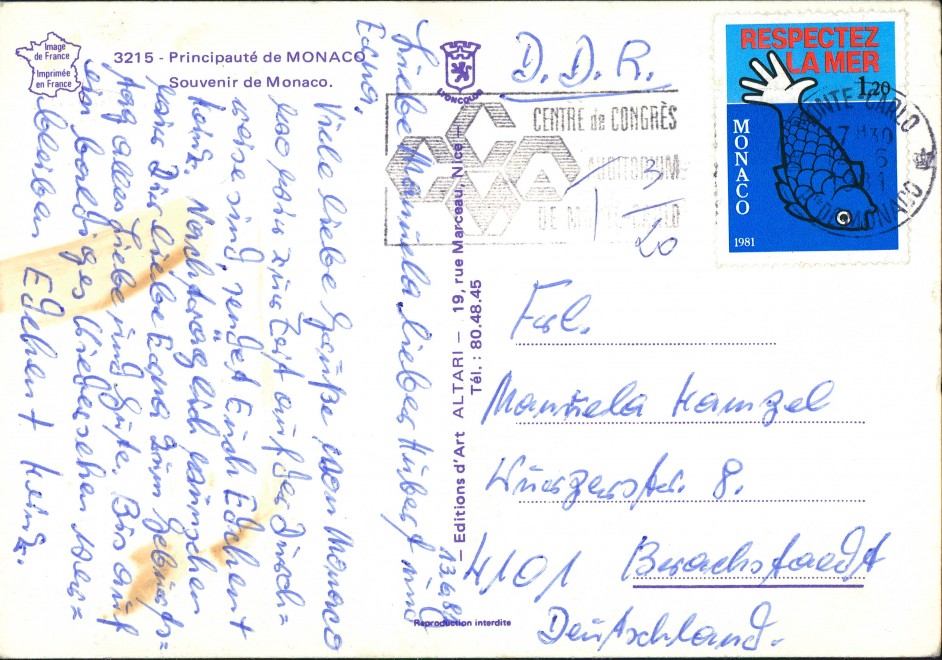 Image
de France
Imprimée
en France
3215 - Principauté de MONACO
Souvenir de Monaco.
LIONCOLOR
13.6.81
Liebe Manuela lieber Hubert und
Edna.
Viele liebe Grüße von Monaco
wo wir zur Zeit auf der Durch=
reise sind, sendet Euch Edchen +
Heinz. Nachträglich wünschen
wir Dir liebe Edna zum Geburts=
tag alles Liebe und Gute. Bis auf
ein baldiges Wiedersehen ver=
bleiben
Edchen + Heinz.
— Editions d'Art ALTARI — 19, rue Marceau, Nice —
Tél. : 80.48.45
Reproduction interdite
D.D.R.
CENTRE de CONGRÈS
AUDITORIUM
DE MONTE-CARLO
3
20
RESPECTEZ
LA MER
1,20
MONACO
1981
MONTE-CARLO
17 H30
Pté DE MONACO
Frl.
Manuela Hampel
Wurzerstr. 8.
4101 Brachstaedt
Deutschland.